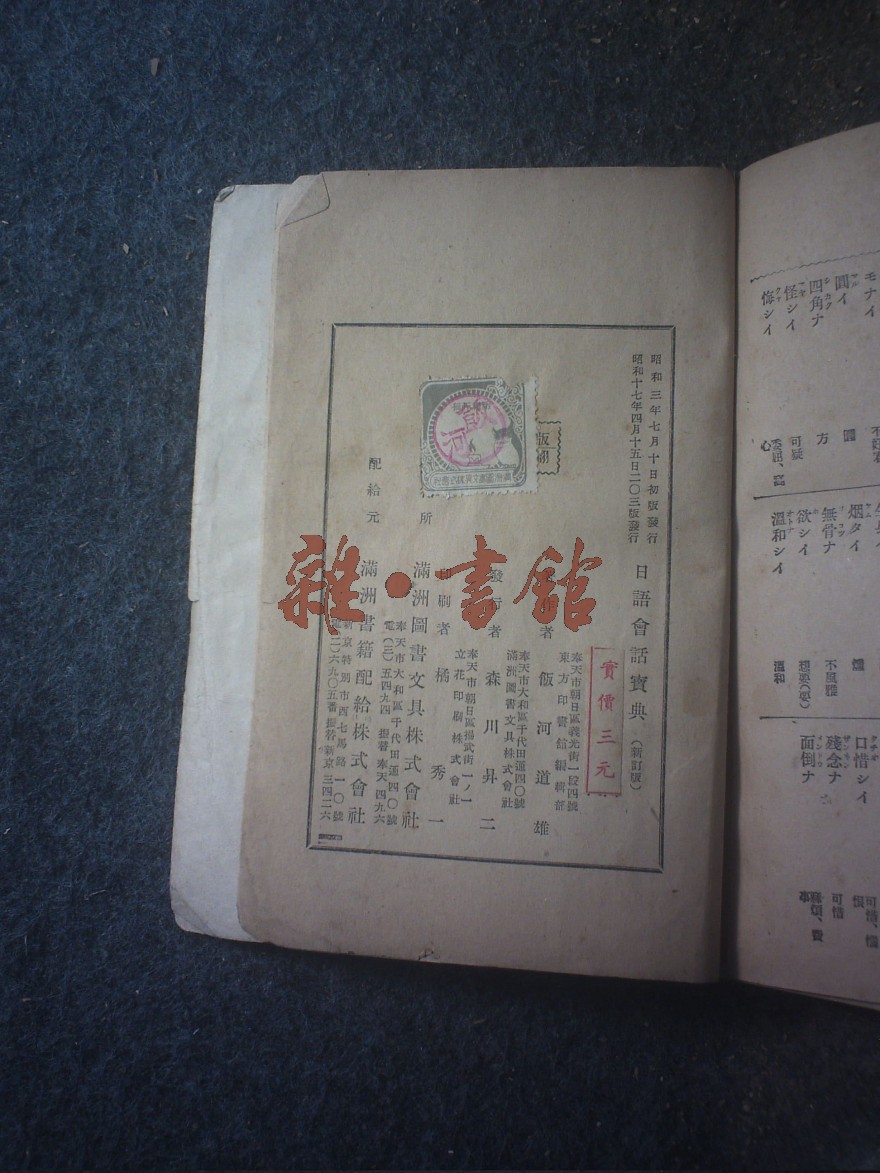 昭和三年七月十日初版發行
昭和十七年四月十五日二〇三版發行
日語會話寶典（新訂版）
實價三元
奉天市朝日區義光街一段四號
東方印書館編輯部
者 飯河道雄
奉天市大和區千代田通四〇號
滿洲圖書文具株式會社
發行者 森川昇二
奉天市朝日區揚武街一ノ一
立花印刷株式會社
印刷者 橘秀一
所 滿洲圖書文具株式會社
奉天市大和區千代田通四〇號
電(三)五四九四 振替奉天四九六
配給元 滿洲書籍配給株式會社
新京特別市西七馬路一〇號
電(二)六九〇五番 振替新京三四二六
飯河
雜·書館
モナイ
圓イ
圓
四角ナ
方
怪シイ
可疑
悔シイ
烟タイ
無骨ナ
不風雅
欲シイ
想要(要)
溫和シイ
溫和
口惜シイ
殘念ナ
可惜
面倒ナ